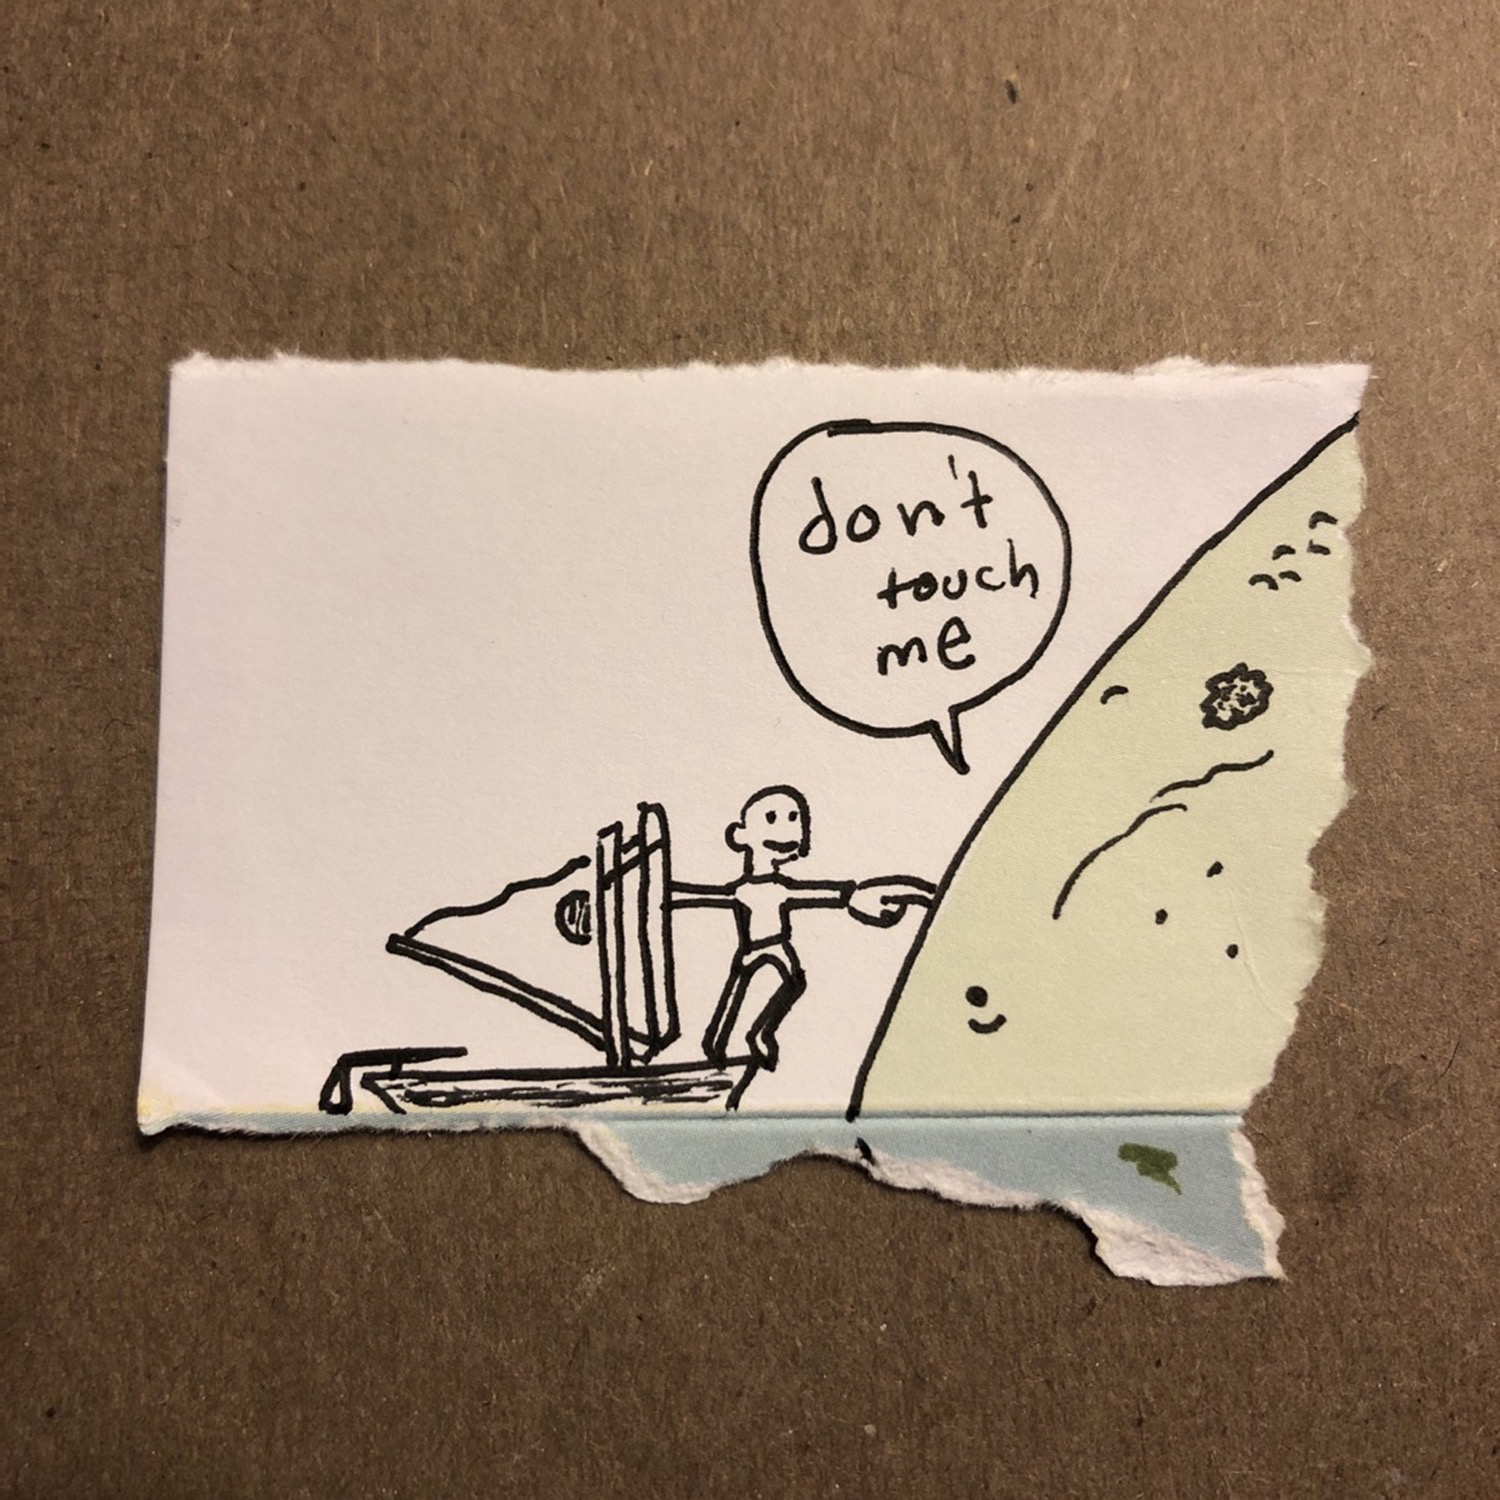 don't
touch
me